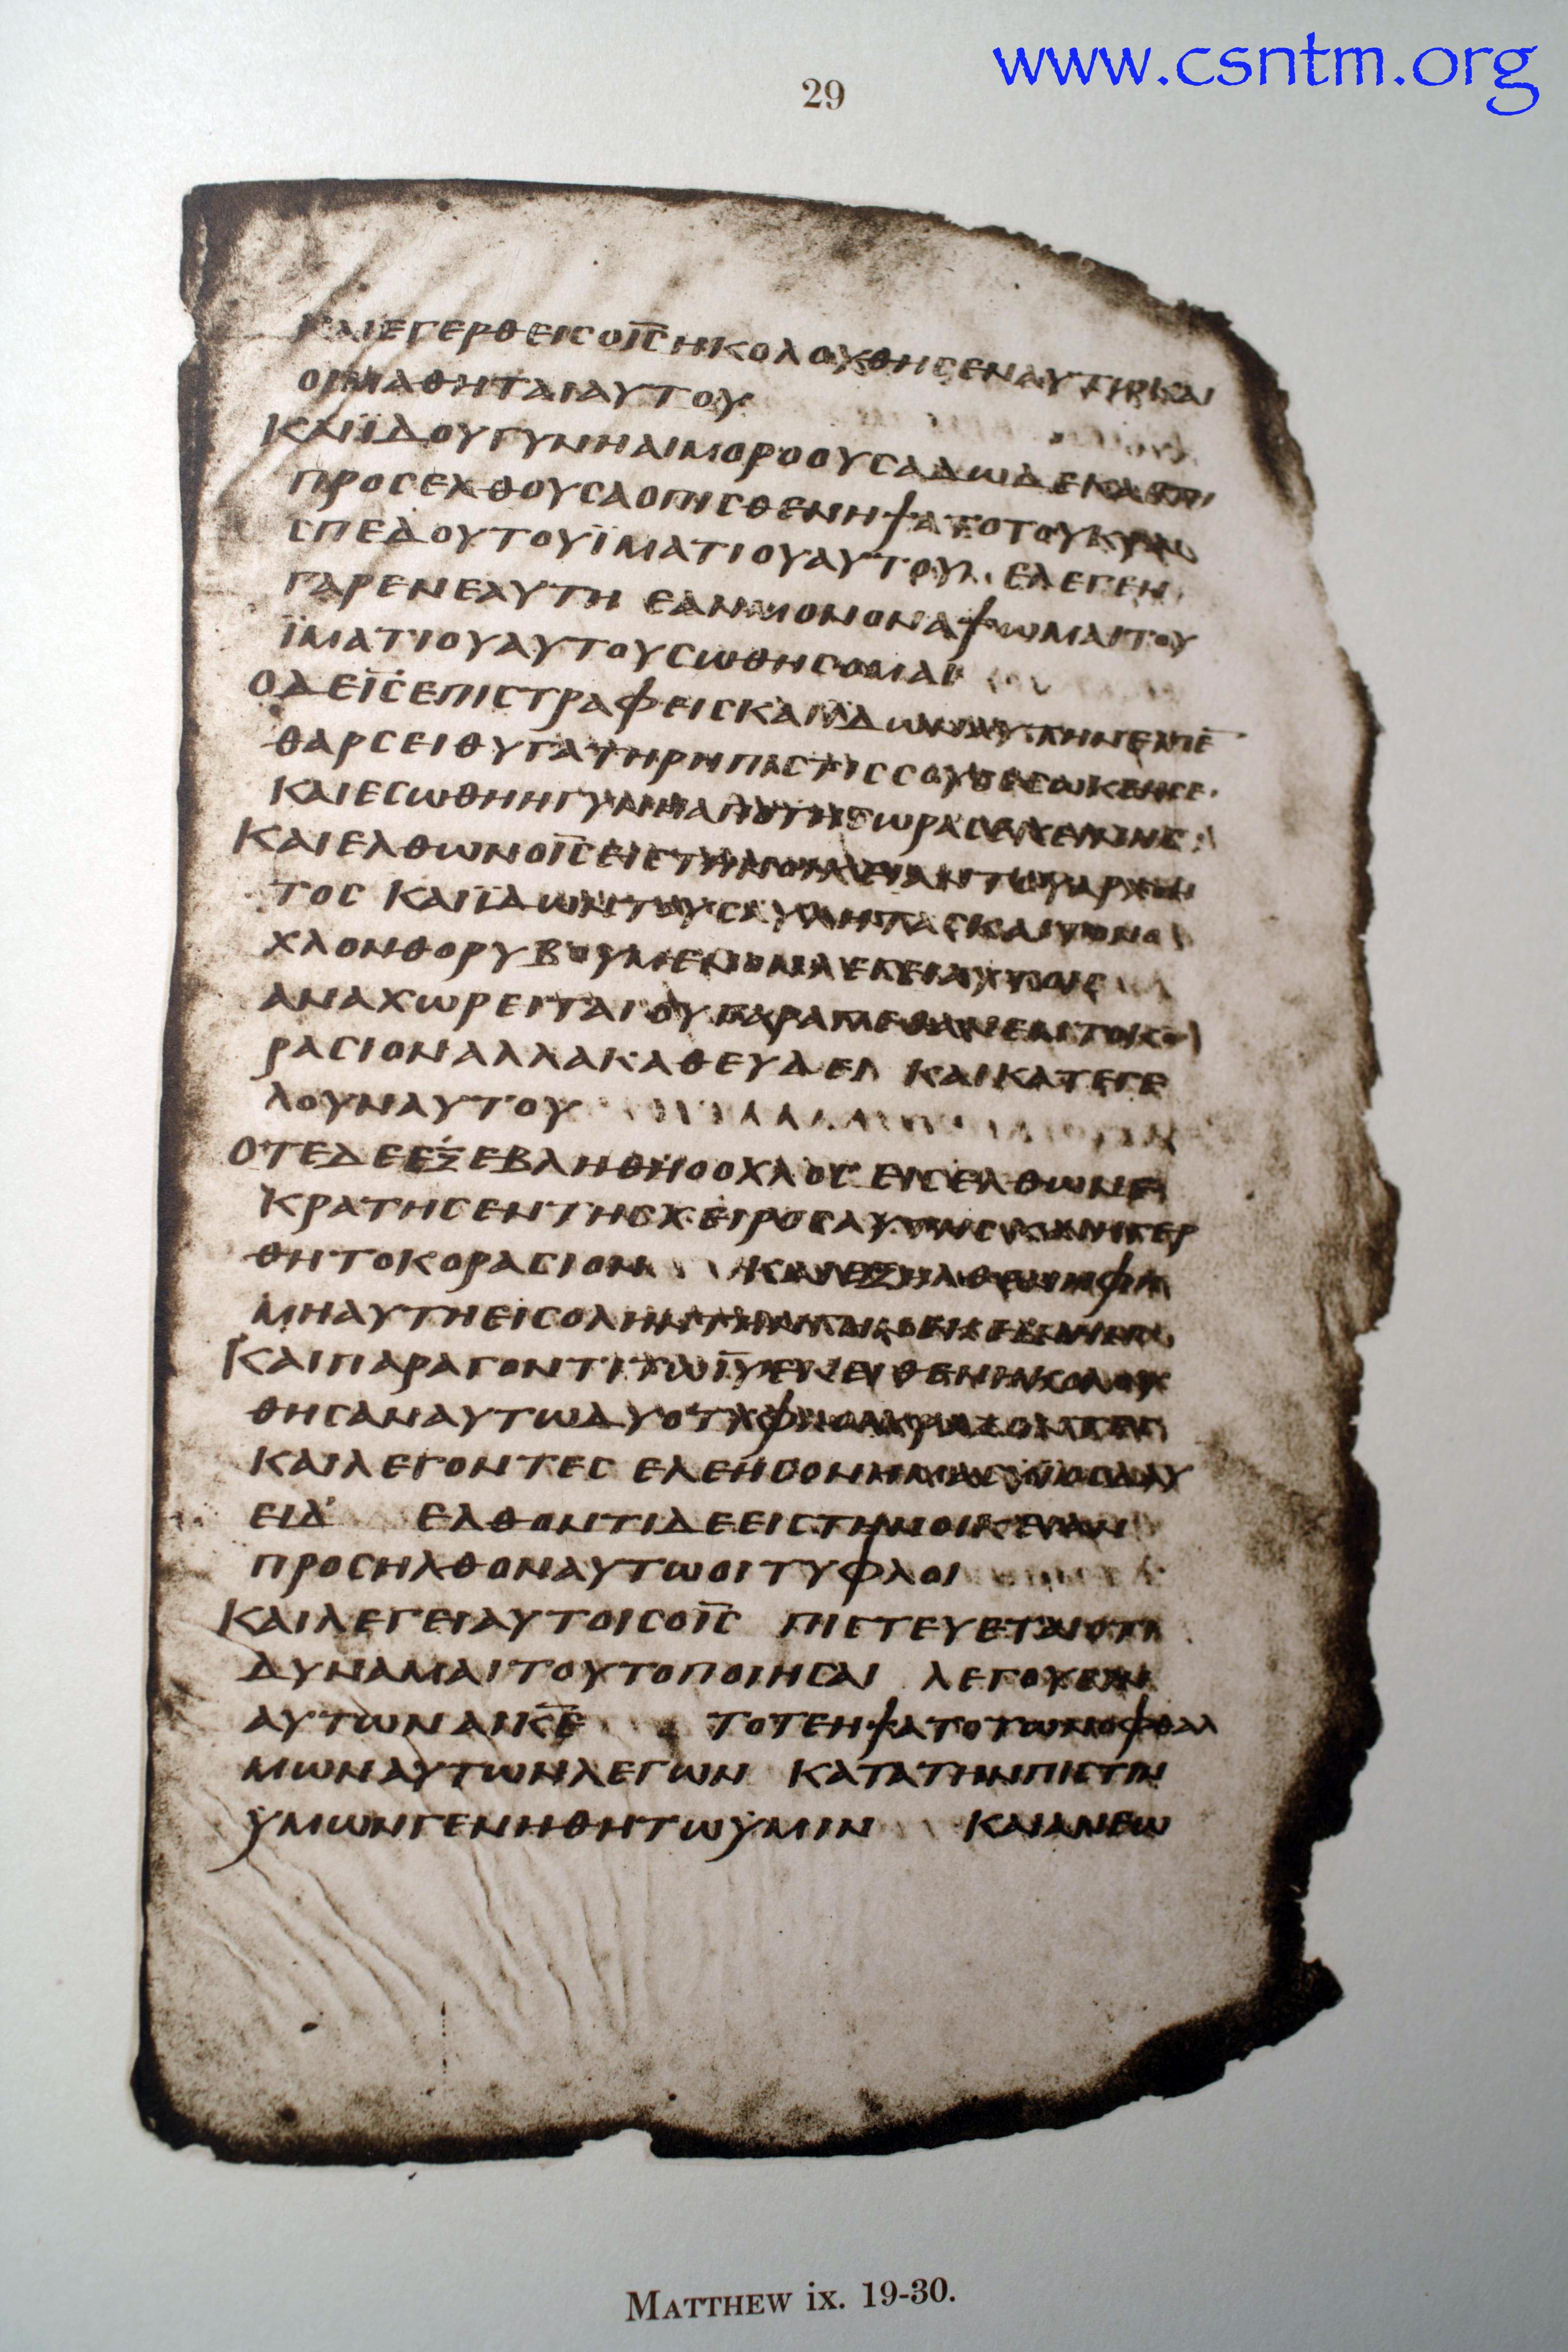 www.csntm.org
29
ΚΑΙΕΓΕΡΘΕΙϹΟΙ̅Ϲ̅ΗΚΟΛΟΥΘΗϹΕΝΑΥΤΩΚΑΙ
ΟΙΜΑΘΗΤΑΙΑΥΤΟΥ
ΚΑΙΪΔΟΥΓΥΝΗΑΙΜΟΡΟΟΥϹΑΔΩΔΕΚΑ
ΠΡΟϹΕΛΘΟΥϹΑΟΠΙϹΘΕΝΗΨΑΤΟΤΟΥΚΡΑ
ϹΠΕΔΟΥΤΟΥΪΜΑΤΙΟΥΑΥΤΟΥ ΕΛΕΓΕΝ
ΓΑΡΕΝΕΑΥΤΗ ΕΑΝΜΟΝΟΝΑΨΩΜΑΙΤΟΥ
ΪΜΑΤΙΟΥΑΥΤΟΥϹΩΘΗϹΟΜΑΙ
ΟΔΕΙ̅Ϲ̅ΕΠΙϹΤΡΑΦΕΙϹΚΑΙΪΔΩΝΑΥΤΗΝΕΙΠΕ̅
ΘΑΡϹΕΙΘΥΓΑΤΗΡΗΠΙϹΤΙϹϹΟΥϹΕϹΩΚΕΝϹΕ
ΚΑΙΕϹΩΘΗΗΓΥΝΗΑΠΟΤΗϹΩΡΑϹΕΚΕΙΝΗϹ
ΚΑΙΕΛΘΩΝΟΙ̅Ϲ̅ΕΙϹΤΗΝΟΙΚΕΙΑΝΤΟΥΑΡΧΟΝ
ΤΟϹ ΚΑΙΪΔΩΝΤΟΥϹΑΥΛΗΤΑϹΚΑΙΤΟΝΟ
ΧΛΟΝΘΟΡΥΒΟΥΜΕΝΟΝΛΕΓΕΙΑΥΤΟΙϹ
ΑΝΑΧΩΡΕΙΤΑΙ ΟΥΓΑΡΑΠΕΘΑΝΕΝΤΟΚΟ
ΡΑϹΙΟΝΑΛΛΑΚΑΘΕΥΔΕΙ ΚΑΙΚΑΤΕΓΕ
ΛΟΥΝΑΥΤΟΥ
ΟΤΕΔΕΕΞΕΒΛΗΘΗΟΟΧΛΟϹ ΕΙϹΕΛΘΩΝΕ
ΚΡΑΤΗϹΕΝΤΗϹΧΕΙΡΟϹΑΥΤΗϹΚΑΙΗΓΕΡ
ΘΗΤΟΚΟΡΑϹΙΟΝ ΚΑΙΕΞΗΛΘΕΝΗΦΗ
ΜΗΑΥΤΗΕΙϹΟΛΗΝΤΗΝ
ΚΑΙΠΑΡΑΓΟΝΤΙΤΩΙ̅Υ̅ΕΚΕΙΘΕΝΗΚΟΛΟΥ
ΘΗϹΑΝΑΥΤΩΔΥΟΤΥΦΛΟΙΚΡΑΖΟΝΤΕϹ
ΚΑΙΛΕΓΟΝΤΕϹ ΕΛΕΗϹΟΝΗΜΑϹΥΙΟϹΔΑΥ
ΕΙΔ ΕΛΘΟΝΤΙΔΕΕΙϹΤΗΝΟΙΚΕΙΑΝ
ΠΡΟϹΗΛΘΟΝΑΥΤΩΟΙΤΥΦΛΟΙ
ΚΑΙΛΕΓΕΙΑΥΤΟΙϹΟΙ̅Ϲ̅ ΠΙϹΤΕΥΕΤΑΙΟΤΙ
ΔΥΝΑΜΑΙΤΟΥΤΟΠΟΙΗϹΑΙ ΛΕΓΟΥϹΙΝ
ΑΥΤΩΝΑΙΚ̅Ε̅ ΤΟΤΕΗΨΑΤΟΤΩΝΟΦΘΑΛ
ΜΩΝΑΥΤΩΝΛΕΓΩΝ ΚΑΤΑΤΗΝΠΙϹΤΙΝ
ΥΜΩΝΓΕΝΗΘΗΤΩΥΜΙΝ ΚΑΙΑΝΕΩ
MATTHEW ix. 19-30.